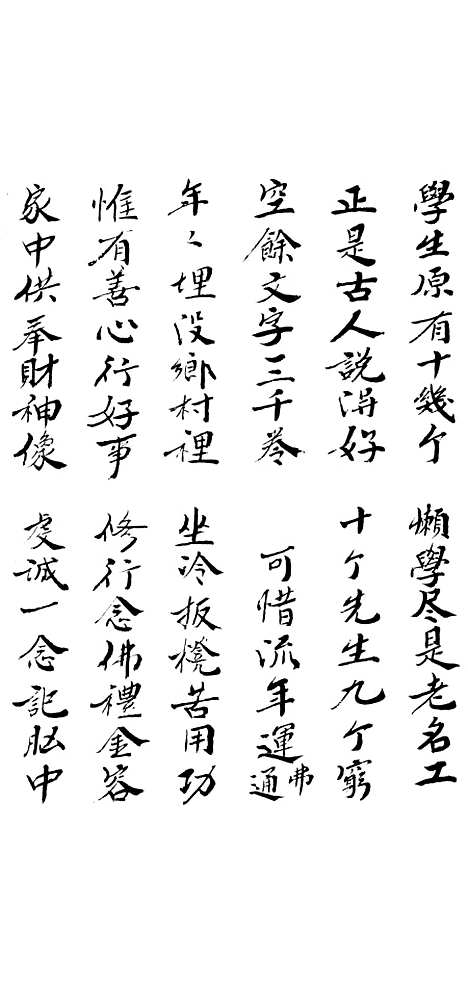 學生原有十幾个 懶學尽是老名工
正是古人説得好 十个先生九个窮
空餘文字三千卷 可惜流年運弗通
年〻埋没鄉村裡 坐冷扳櫈苦用功
惟有善心行好事 修行念佛禮金容
家中供奉財神像 虔誠一念記脑中